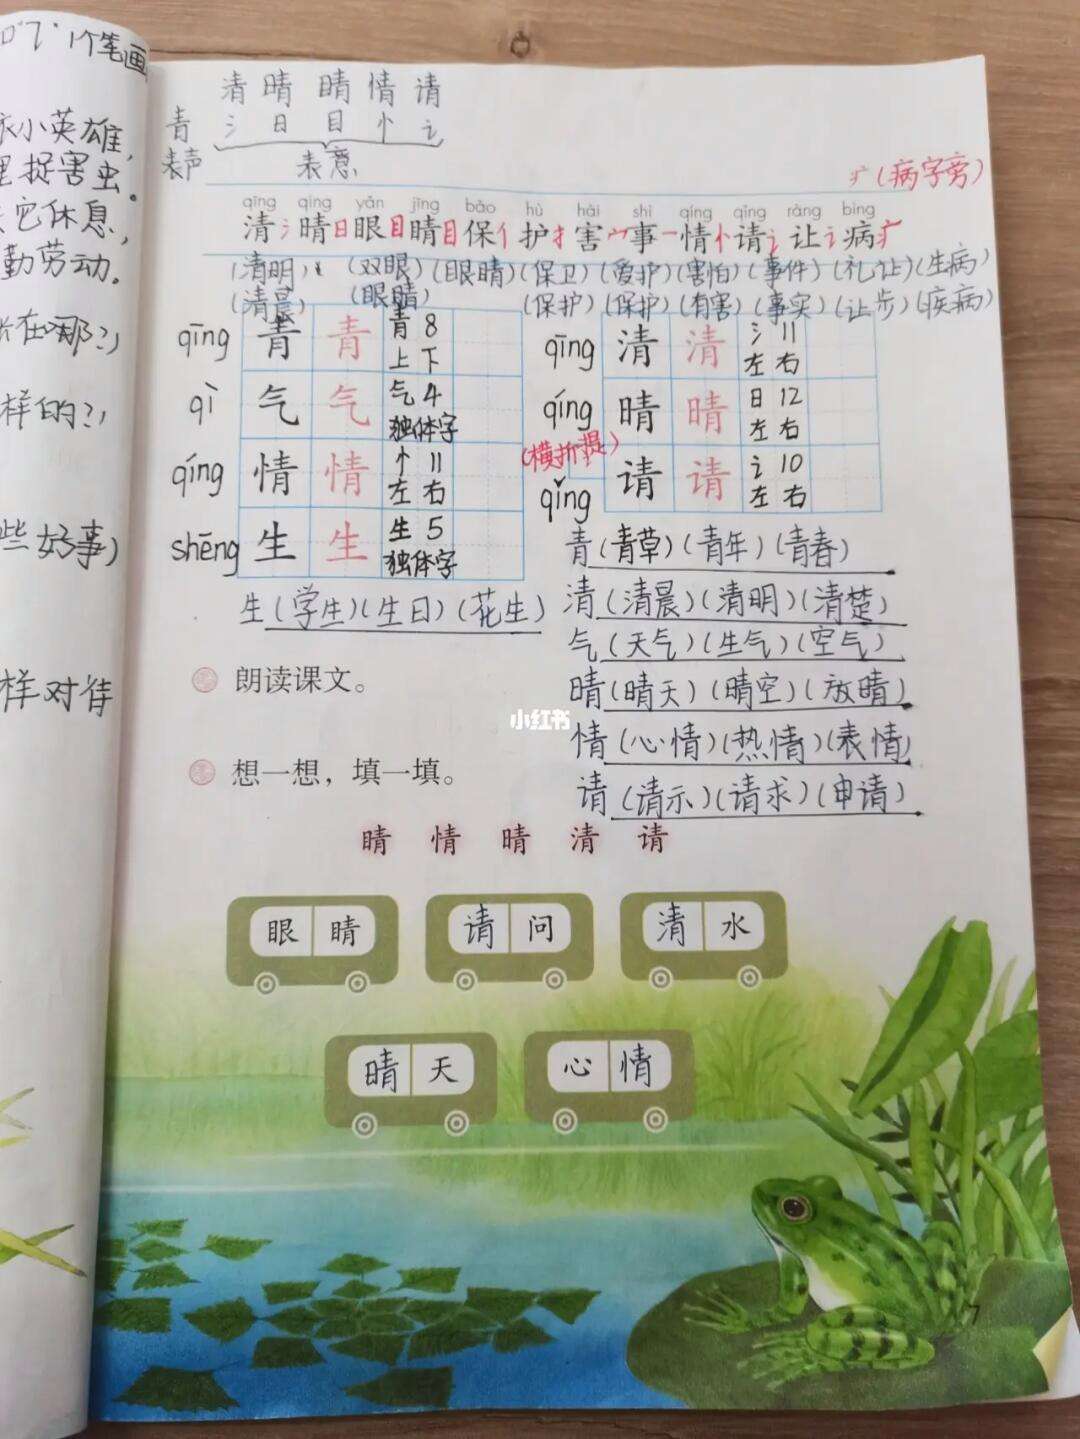 1个笔画
小英雄，
捉害虫。
它休息，
勤劳动。
在哪？）
样的？）
些好事）
样对待
清 晴 睛 情 请
青 氵 日 目 忄 讠
表声 表意
疒（病字旁）
qīng qíng yǎn jīng bǎo hù hài shì qíng qǐng ràng bìng
清氵晴日眼目睛目保亻护扌害宀事一情忄请讠让讠病疒
（清明）（双眼）（眼睛）（保卫）（爱护）（害怕）（事件）（礼让）（生病）
（清晨）（眼睛）（保护）（保护）（有害）（事实）（让步）（疾病）
qīng 青 青 青 8 上下
qì 气 气 气 4 独体字
qíng 情 情 忄 11 左右
shēng 生 生 生 5 独体字
生（学生）（生日）（花生）
qīng 清 清 氵 11 左右
qíng 晴 晴 日 12 左右
（横折提）
qǐng 请 请 讠 10 左右
青（青草）（青年）（青春）
清（清晨）（清明）（清楚）
气（天气）（生气）（空气）
晴（晴天）（晴空）（放晴）
情（心情）（热情）（表情）
请（请示）（请求）（申请）
朗读课文。
小红书
想一想，填一填。
睛 情 晴 清 请
眼睛 请问 清水
晴天 心情
7